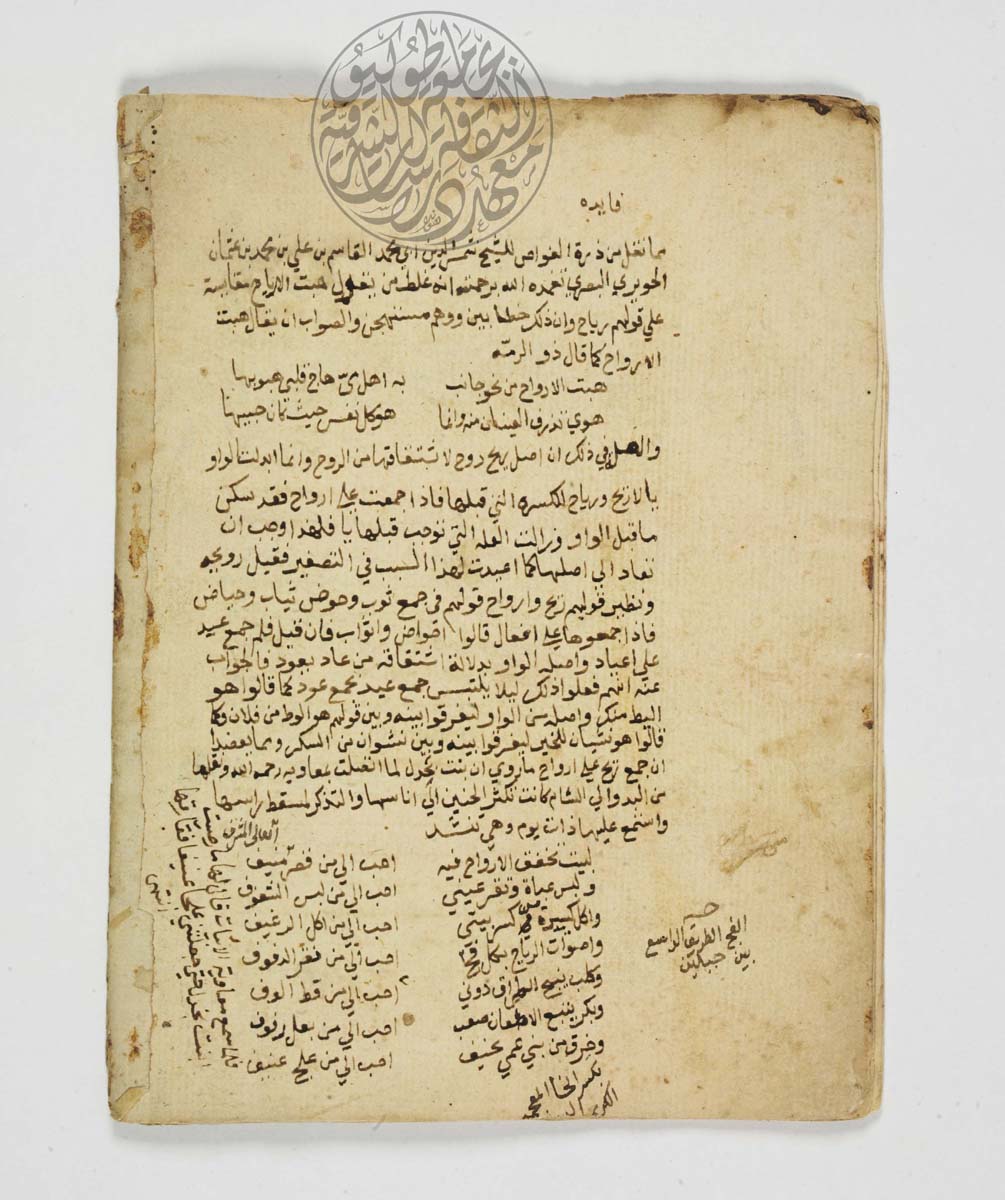 فايده
مما نقل من درة الغواص للشيخ شمس الدين ابي محمد القاسم بن علي بن محمد بن عثمان
الحريري البصري تغمده الله برحمته انه غلط من يقول هبت الارياح مقايسة
علي قولهم رياح وان ذلك خطا بين ووهم مستهجن والصواب ان يقال هبت
الارواح كما قال ذو الرمه
هبت الارواح من نحو جانب به اهل مي هاج قلبي هبوبها
هوي تذرف العينان منه وانما هوي كل نفس حيث كان حبيبها
والاصل في ذلك ان اصل ريح روح لاشتقاقها من الروح وانما ابدلت الواو
يا لازيح ورياح للكسره التي قبلها فاذا جمعت علي ارواح فقد سكن
ما قبل الواو وزالت العله التي توجب قبلها يا فلهذا وجب ان
تعاد الي اصلها كما اعيدت لهذا السبب في التصغير فقيل رويحه
ونظير قولهم ريح وارواح قولهم في جمع ثوب وحوض ثياب وحياض
فاذا جمعوها علي افعال قالوا احواض واثواب فان قيل فلم جمع عيد
علي اعياد واصله الواو بدلالة اشتقاقه من عاد يعود فالجواب
عنه انهم فعلوا ذلك ليلا يلتبس جمع عيد بجمع عود كما قالوا هو
اليط منك واصله من الواو ليفرقوا بينه وبين قولهم هو الوط من فلان وكما
قالوا هو نشيان للخبر ليفرقوا بينه وبين نشوان من السكر ومما يعضد
ان جمع ريح علي ارواح ما روي ان بنت بحدل لما اتصلت بمعاويه رحمه الله ونقلها
من البدو الي الشام كانت تكثر الحنين الي اناسها والتذكر لمسقط راسها
واستمع عليها ذات يوم وهي تنشد
لبيت تخفق الارواح فيه احب الي من قصر منيف
ولبس عباة وتقر عيني احب الي من لبس الشفوف
واكل كسيرة من كسر بيتي احب الي من اكل الرغيف
واصوات الرياح بكل فج احب الي من نقر الدفوف
وكلب ينبح الطراق دوني احب الي من قط الوف
وبكر يتبع الاظعان صعب احب الي من بغل زفوف
وخرق من بني عمي نحيف احب الي من علج عنيف
بكسر الخا المعجمه
الكريم
فلما سمع معاوية الابيات قال لها ما رضيت
ابنت بحدل حتي جعلتني علجا عنيفا ففارقها
انتهي
الفج الطريق الواسع
بين جبلين
معهد الدراسات الثقافة الشرقية جامعة طوكيو